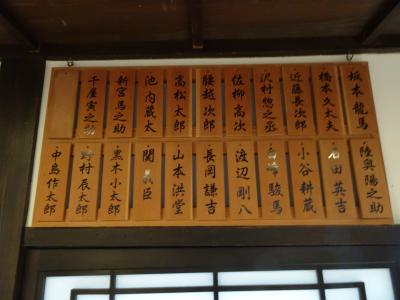 坂本龍馬
橋本久太夫
近藤長次郎
沢村惣之丞
佐柳高次
腰越次郎
高松太郎
池内蔵太
新宮馬之助
千屋寅之助
陸奥陽之助
石田英吉
小谷耕蔵
白峰駿馬
渡辺剛八
長岡謙吉
山本洪堂
関義臣
黒木小太郎
野村辰太郎
中島作太郎